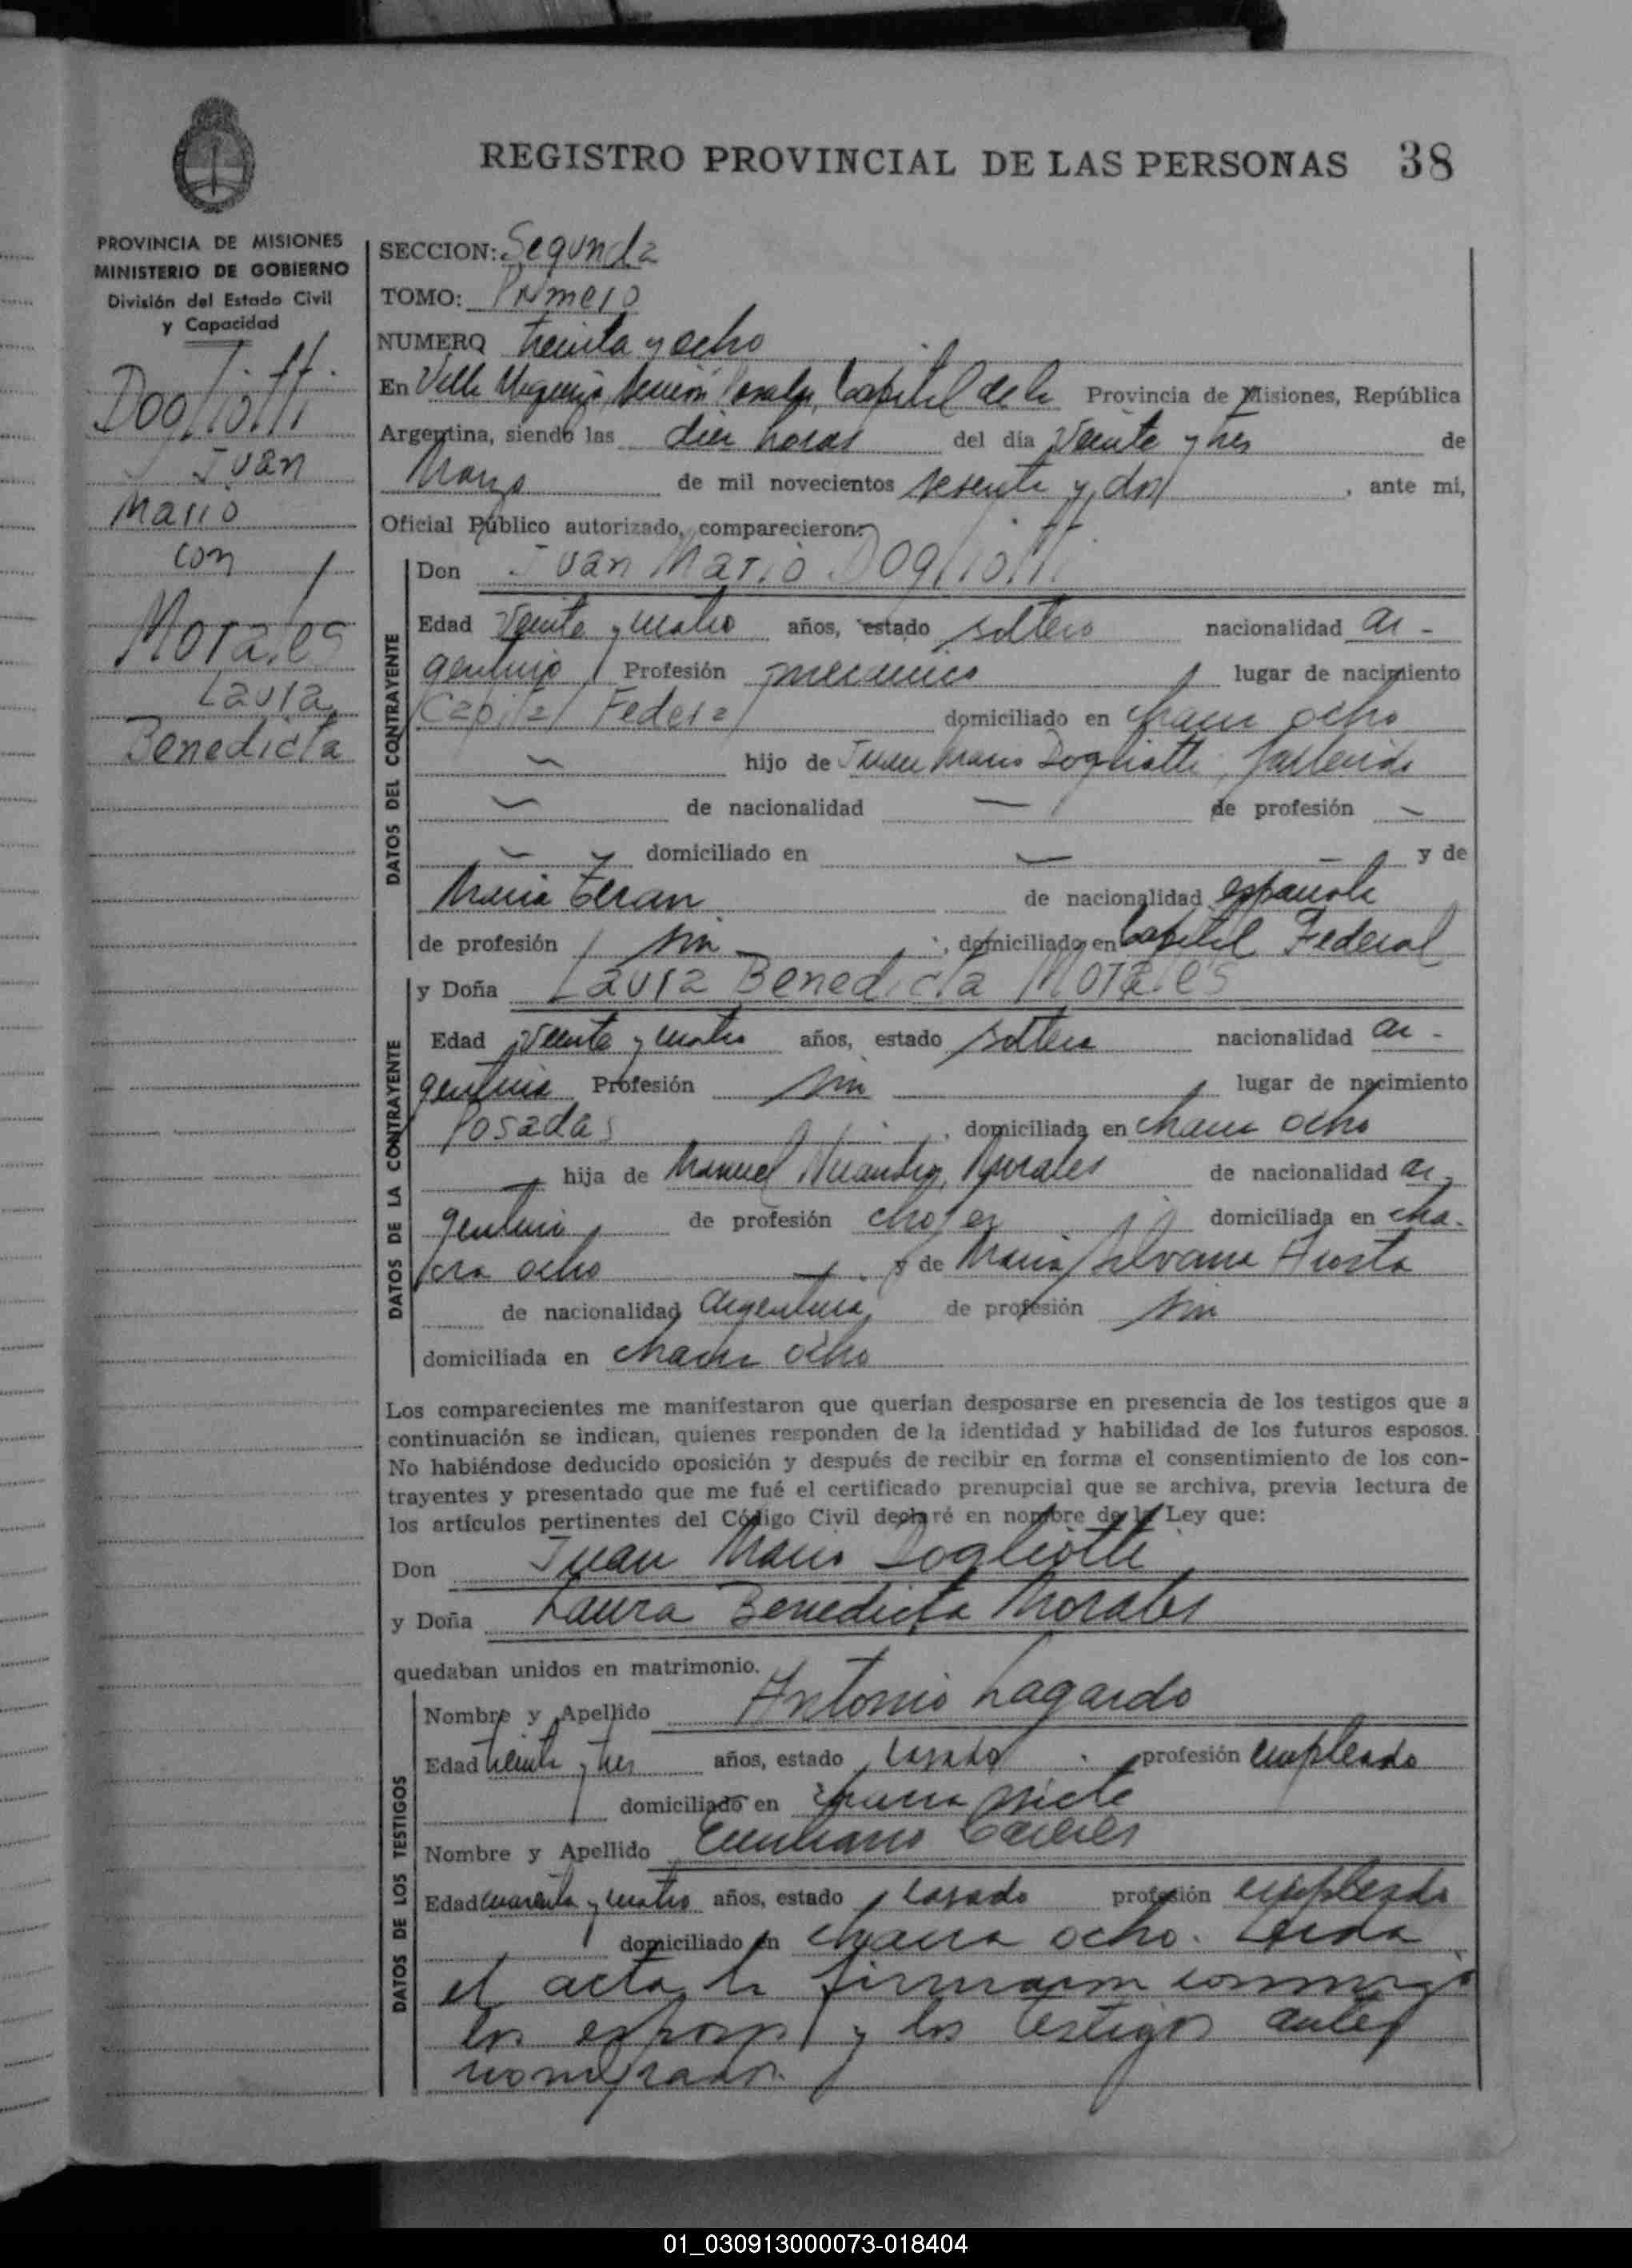 REGISTRO PROVINCIAL DE LAS PERSONAS 38
PROVINCIA DE MISIONES
MINISTERIO DE GOBIERNO
División del Estado Civil
y Capacidad
Dogliotti
Juan
Mario
con
Morales
Laura
Benedicta
SECCION: Segunda
TOMO: Primero
NUMERO treinta y ocho
En Villa Urquiza, sección Posadas, Capital de la Provincia de Misiones, República
Argentina, siendo las diez horas del día veinte y tres de
Marzo de mil novecientos sesenta y dos, ante mi,
Oficial Público autorizado, comparecieron:
DATOS DEL CONTRAYENTE
Don Juan Mario Dogliotti
Edad veinte y cuatro años, estado soltero nacionalidad ar-
gentino Profesión mecanico lugar de nacimiento
Capital Federal domiciliado en chacra ocho
hijo de Juan Mario Dogliotti, fallecido
de nacionalidad de profesión
domiciliado en y de
Maria Teran de nacionalidad española
de profesión sin, domiciliado en Capital Federal
DATOS DE LA CONTRAYENTE
y Doña Laura Benedicta Morales
Edad veinte y cuatro años, estado soltera nacionalidad ar-
gentina Profesión sin lugar de nacimiento
Posadas, domiciliada en chacra ocho
hija de Manuel Morales de nacionalidad ar-
gentino de profesión chofer domiciliada en cha-
cra ocho y de Maria Silvana Acosta
de nacionalidad argentina, de profesión sin
domiciliada en chacra ocho
Los comparecientes me manifestaron que querían desposarse en presencia de los testigos que a
continuación se indican, quienes responden de la identidad y habilidad de los futuros esposos.
No habiéndose deducido oposición y después de recibir en forma el consentimiento de los con-
trayentes y presentado que me fué el certificado prenupcial que se archiva, previa lectura de
los artículos pertinentes del Código Civil declaré en nombre de la Ley que:
Don Juan Mario Dogliotti
y Doña Laura Benedicta Morales
quedaban unidos en matrimonio.
DATOS DE LOS TESTIGOS
Nombre y Apellido Antonio Lagardo
Edad treinta y tres años, estado casado profesión empleado
domiciliado en chacra siete
Nombre y Apellido Emiliano Caceres
Edad cuarenta y cuatro años, estado casado profesión empleado
domiciliado en chacra ocho. Leida
el acta la firmaron conmigo
los esposos y los testigos antes
nombrados.
01_030913000073-018404